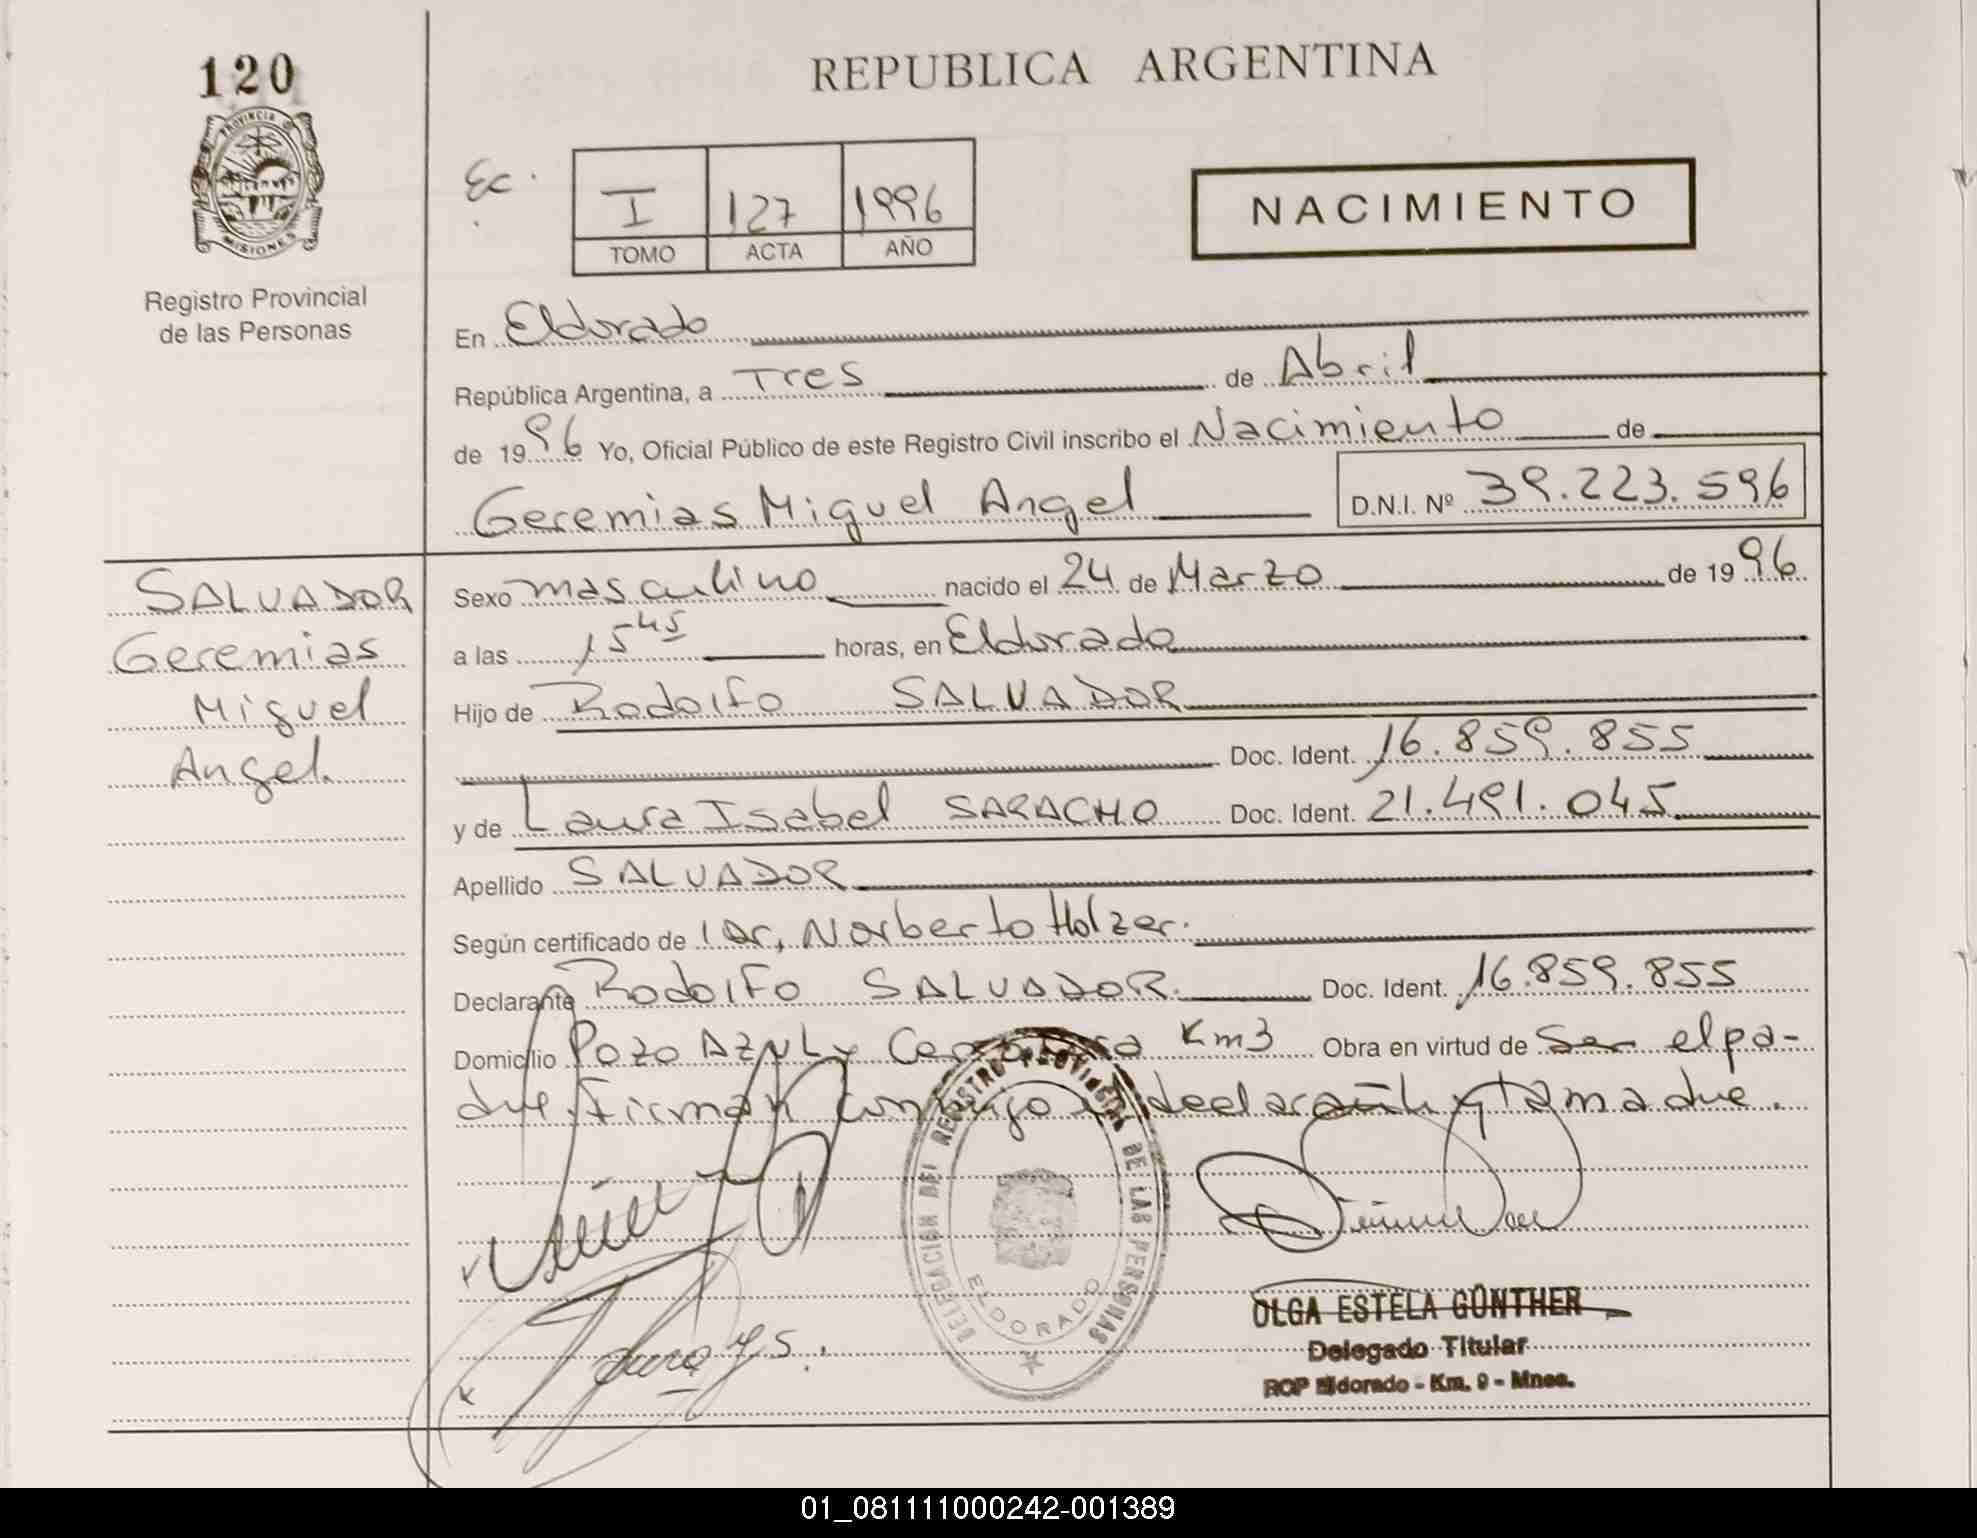 120
REPUBLICA ARGENTINA
PROVINCIA D
MISIONES
Registro Provincial
de las Personas
Ec.
I 127 1996
TOMO ACTA AÑO
NACIMIENTO
En Eldorado
República Argentina, a Tres de Abril
de 1996 Yo, Oficial Público de este Registro Civil inscribo el Nacimiento de
Geremias Miguel Angel D.N.I. Nº 39.223.596
SALVADOR
Geremias
Miguel
Angel.
Sexo masculino nacido el 24 de Marzo de 1996
a las 15 45 horas, en Eldorado
Hijo de Rodolfo SALVADOR
Doc. Ident. 16.859.855
y de Laura Isabel SARACHO Doc. Ident. 21.491.045
Apellido SALVADOR
Según certificado de Norberto Holzer.
Declarante Rodolfo SALVADOR. Doc. Ident. 16.859.855
Domicilio Pozo AZUL y Km3 Obra en virtud de Ser el pa-
dre. Firman conmigo el declarante y la madre.
DELEGACION DEL REGISTRO PROVINCIAL DE LAS PERSONAS
ELDORADO
OLGA ESTELA GÜNTHER
Delegado Titular
RCP Eldorado - Km. 9 - Mnes.
01_081111000242-001389